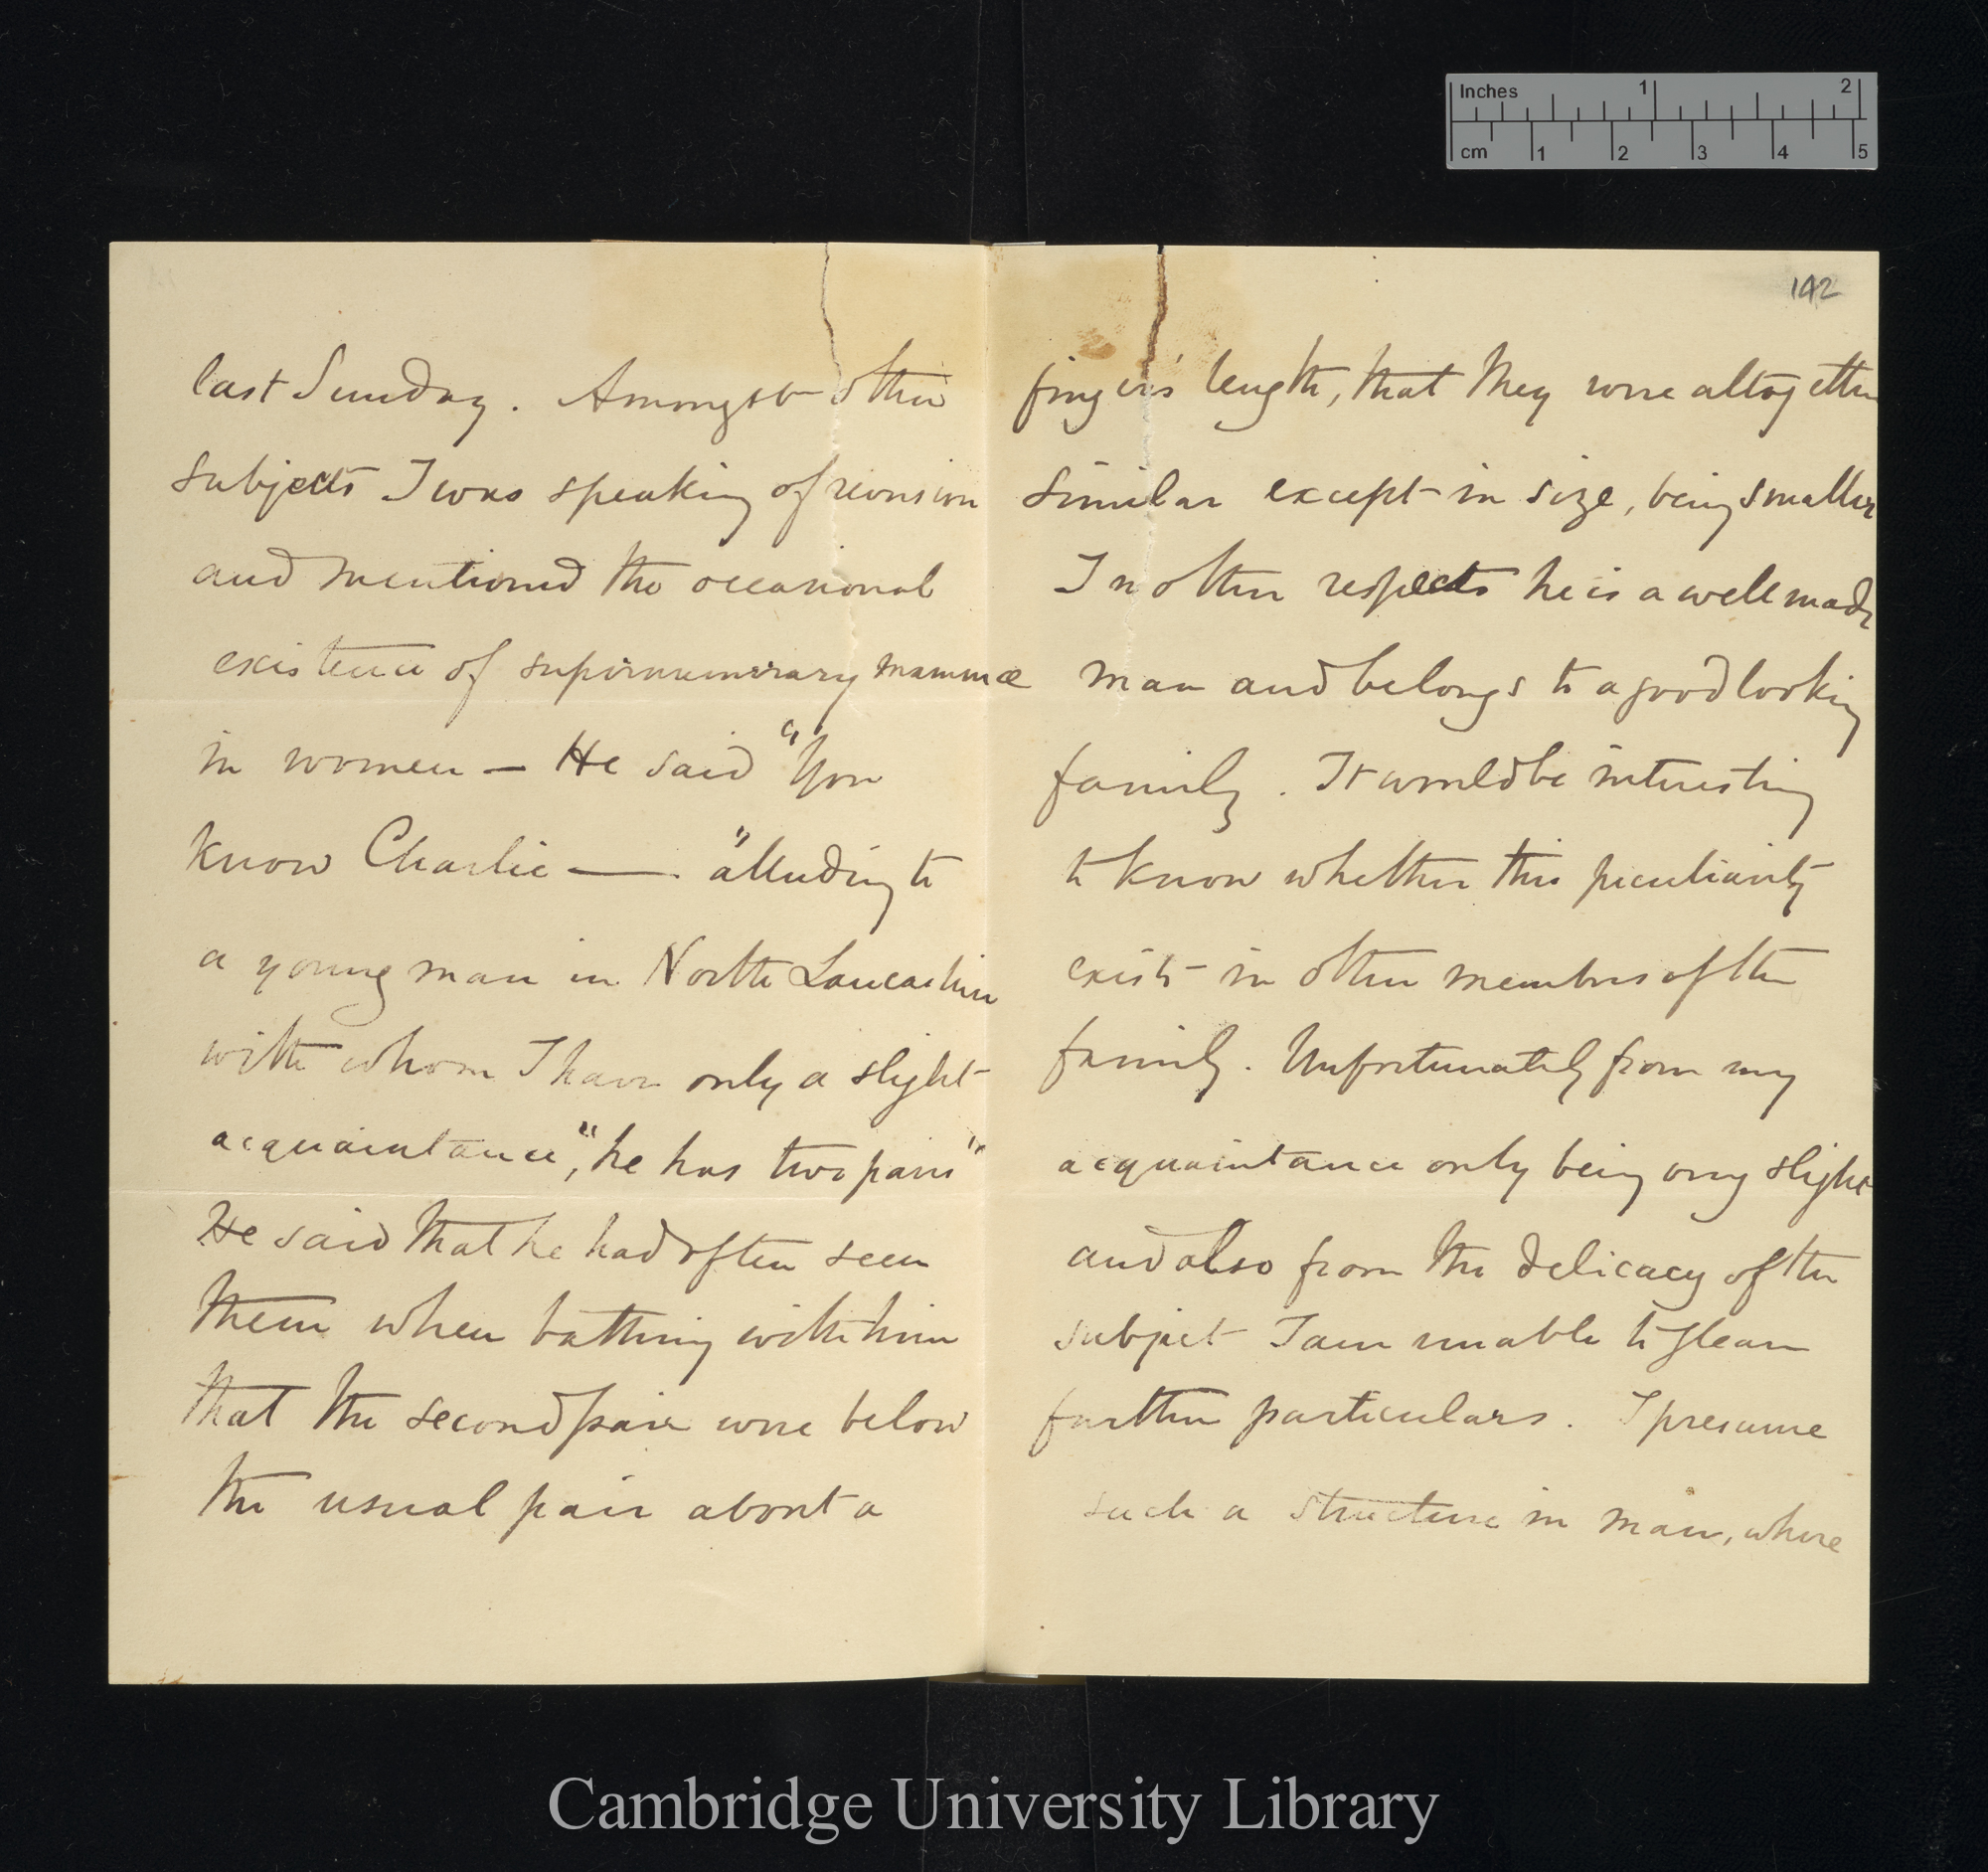 Inches 1 2
cm 1 2 3 4 5
last Sunday. Amongst other
subjects I was speaking of reversion
and mentioned the occasional
existence of supernumerary mammæ
in women — He said "You
know Charlie —— " alluding to
a young man in North Lancashire
with whom I have only a slight
acquaintance, "he has two pairs"
He said that he had often seen
them when bathing with him
that the second pair were below
the usual pair about a
142
finger's length, that they were altogether
similar except in size, being smaller
In other respects he is a well made
man and belongs to a good looking
family. It would be interesting
to know whether this peculiarity
exists in other members of the
family. Unfortunately from my
acquaintance only being very slight
and also from the delicacy of the
subject I am unable to glean
further particulars. I presume
such a structure in man, where
Cambridge University Library